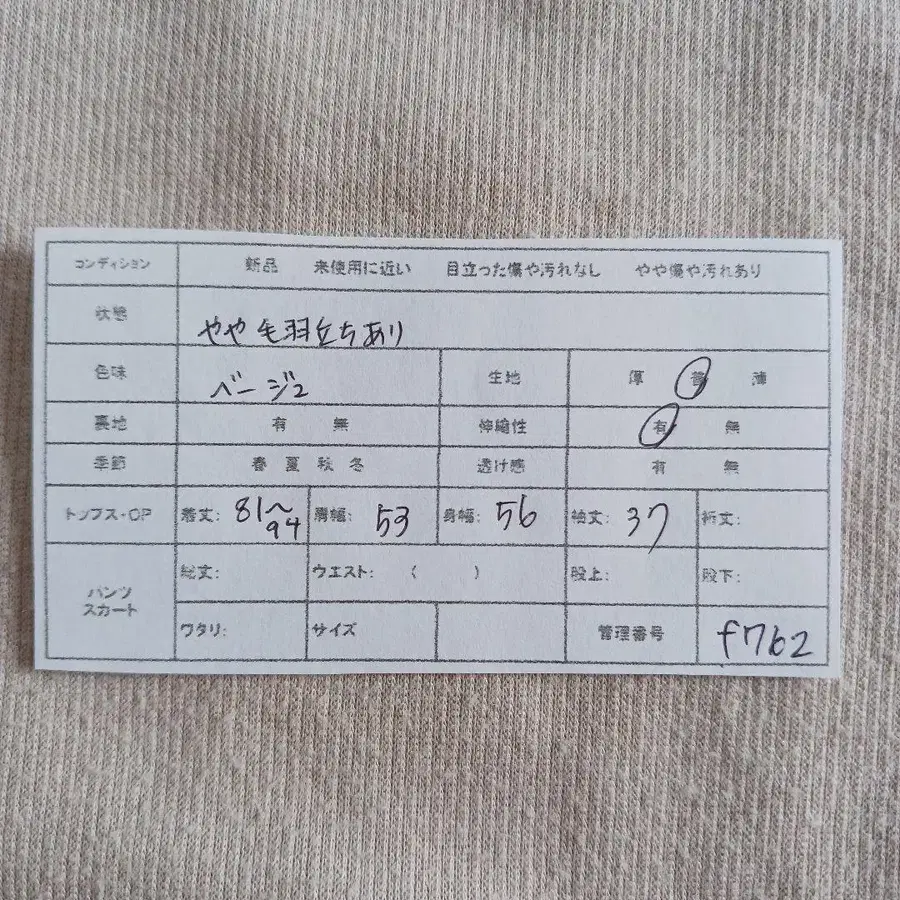 コンディション 新品 未使用に近い 目立った傷や汚れなし やや傷や汚れあり
状態 やや毛羽立ちあり
色味 ベージュ 生地 厚 普 薄
裏地 有 無 伸縮性 有 無
季節 春 夏 秋 冬 透け感 有 無
トップス・OP 着丈: 81〜94 肩幅: 53 身幅: 56 袖丈: 37 裄丈:
パンツ スカート 総丈: ウエスト: ( ) 股上: 股下:
ワタリ: サイズ 管理番号 f762